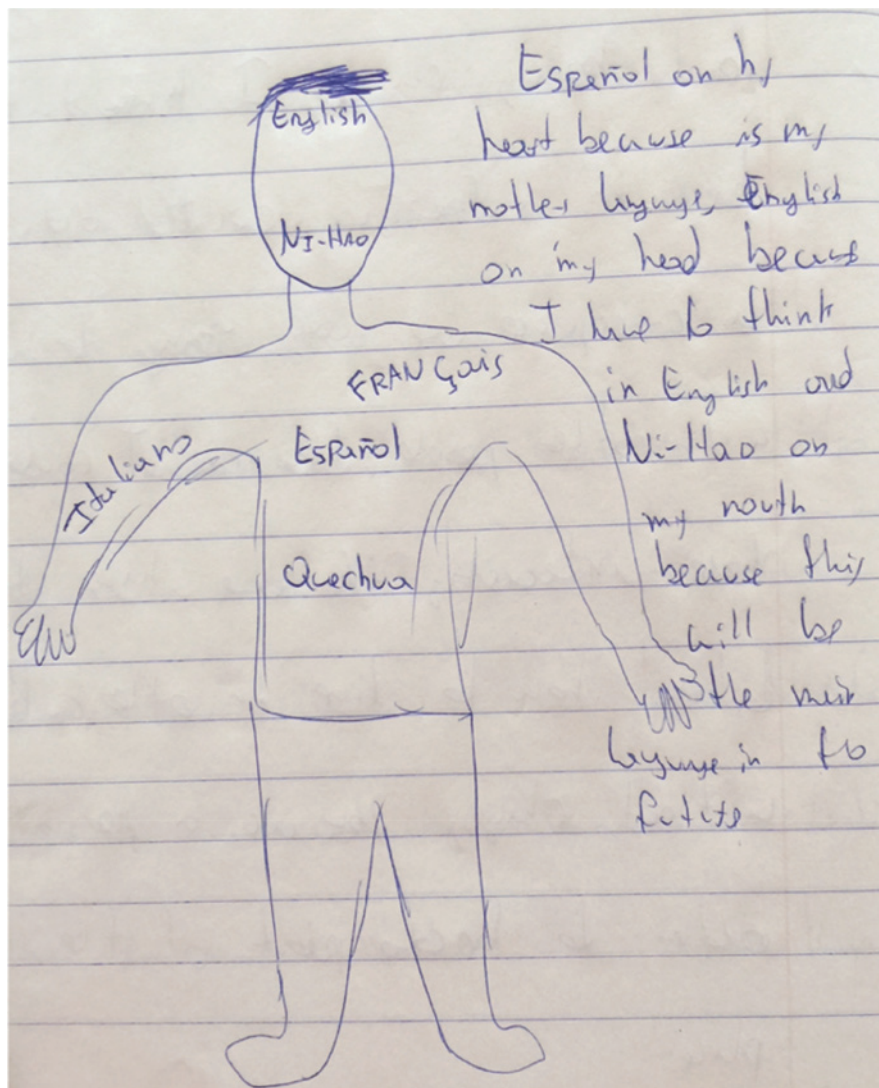 English
NI-HAO
FRANÇais
Italiano
Español
Quechua
Español on my
heart because is my
mother language, English
on my head becaus
I have to think
in English and
Ni-Hao on
my mouth
because this
will be
the main
language in the
future